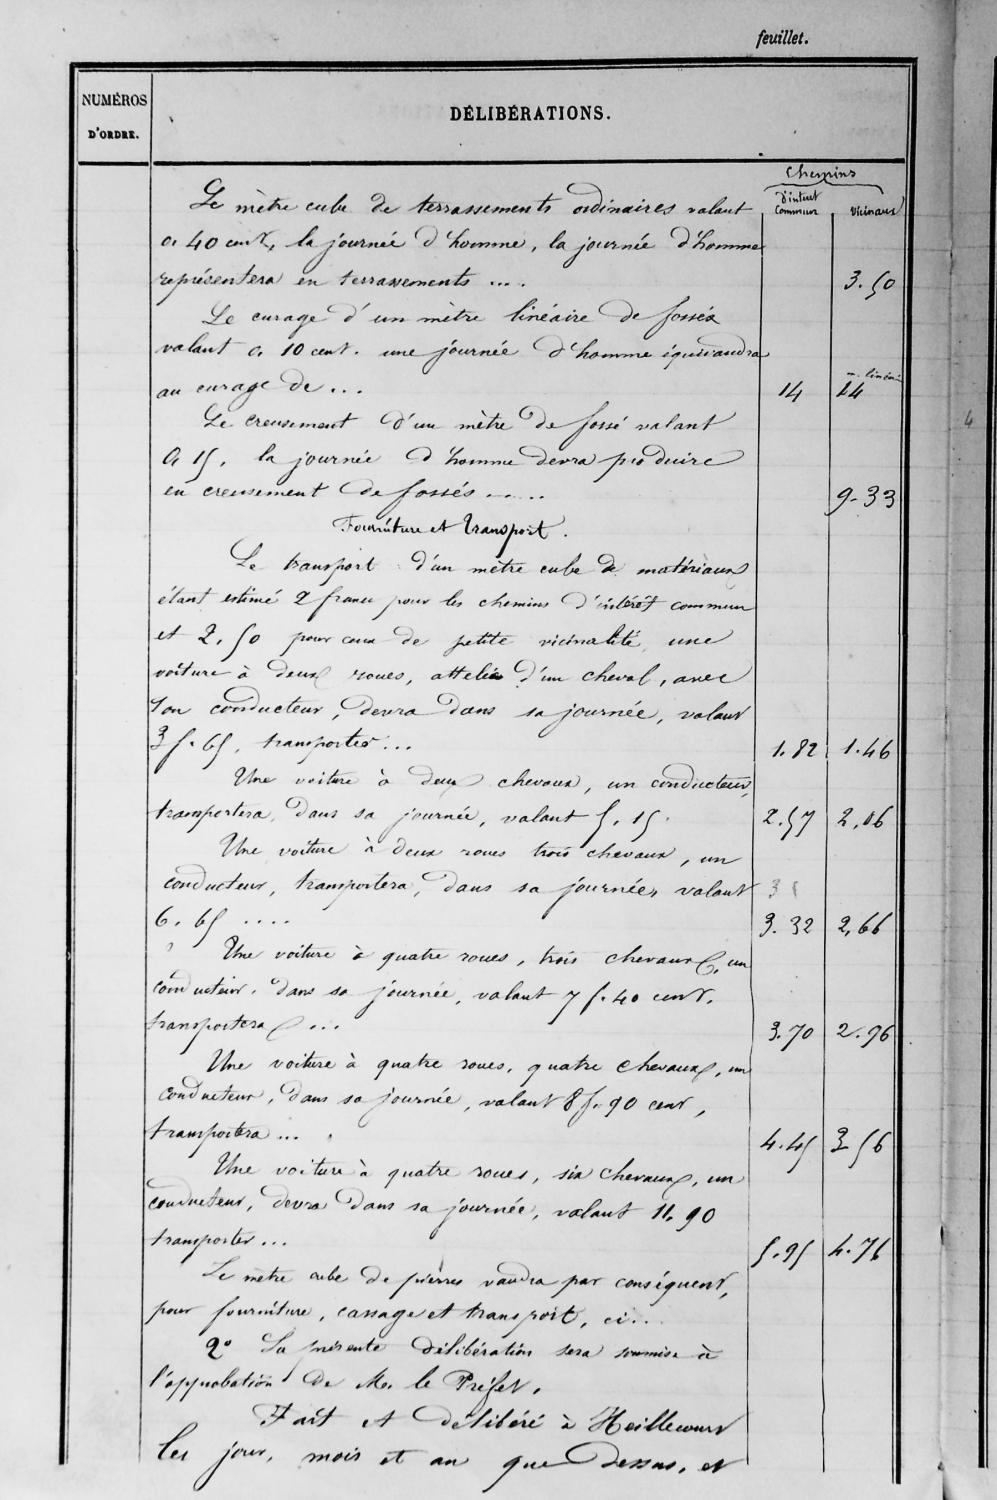 feuillet.
NUMÉROS
D'ORDRE.
DÉLIBÉRATIONS.
Chemins
d'intérêt
commun
vicinaux
Le mètre cube de terrassements ordinaires valant
0. 40 cent, la journée d'homme, la journée d'homme
représentera en terrassements .... 3.50
Le curage d'un mètre linéaire de fossés
valant 0. 10 cent. une journée d'homme équivaudra
au curage de ... 14 14
Le creusement d'un mètre de fossé valant
0, 15, la journée d'homme devra produire
en creusement de fossés ..... 9-33
Fourniture et transport.
Le transport d'un mètre cube de matériaux
étant estimé 2 francs pour les chemins d'intérêt commun
et 2,50 pour ceux de petite vicinalité, une
voiture à deux roues, attelée d'un cheval, avec
son conducteur, devra dans sa journée, valant
3 f. 65, transporter ... 1.82 1.46
Une voiture à deux chevaux, un conducteur,
transportera, dans sa journée, valant 5,15. 2.57 2,06
Une voiture à deux roues trois chevaux, un
conducteur, transportera, dans sa journée, valant
6. 65 .... 3.32 2,66
Une voiture à quatre roues, trois chevaux, un
conducteur, dans sa journée, valant 7 f. 40 cent,
transportera ... 3.70 2.96
Une voiture à quatre roues, quatre chevaux, un
conducteur, dans sa journée, valant 8 f. 90 cent,
transportera ... 4.45 3 56
Une voiture à quatre roues, six chevaux, un
conducteur, devra dans sa journée, valant 11,90
transporter ... 5.95 4.76
Le mètre cube de pierres vaudra par conséquent,
pour fourniture, cassage et transport, ci ...
2° La présente délibération sera soumise à
l'approbation de M. le Préfet.
Fait et délibéré à Heillecourt
les jour, mois et an que dessus, et